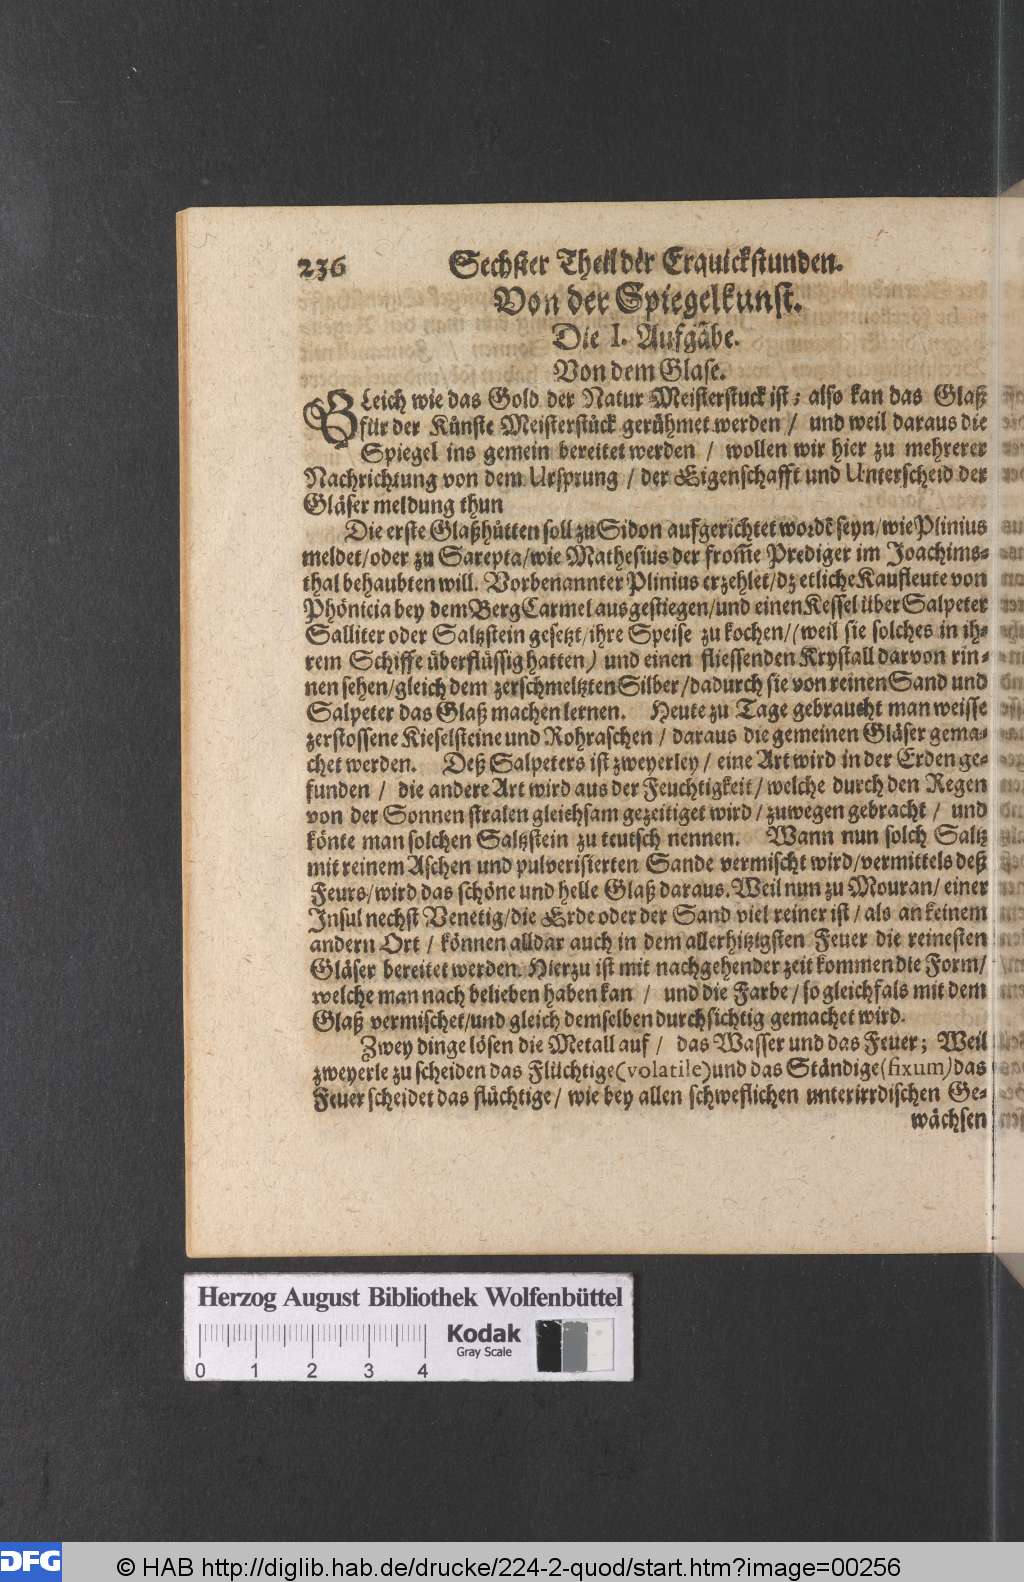 236 Sechster Theil der Erquickstunden.
Von der Spiegelkunst.
Die I. Aufgabe.
Von dem Glase.
Gleich wie das Gold der Natur Meisterstuck ist; also kan das Glaß
für der Künste Meisterstück gerühmet werden / und weil daraus die
Spiegel ins gemein bereitet werden / wollen wir hier zu mehrerer
Nachrichtung von dem Ursprung / der Eigenschafft und Unterscheid der
Gläser meldung thun
Die erste Glaßhütten soll zu Sidon aufgerichtet wordē seyn/wie Plinius
meldet/oder zu Sarepta/wie Mathesius der from̃e Prediger im Joachims-
thal behaubten will. Vorbenannter Plinius erzehlet/dz etliche Kaufleute von
Phönicia bey dem Berg Carmel ausgestiegen/und einen Kessel über Salpeter
Salliter oder Saltzstein gesetzt/ihre Speise zu kochen/(weil sie solches in ih-
rem Schiffe überflüssig hatten) und einen fliessenden Krystall darvon rin-
nen sehen/gleich dem zerschmeltzten Silber/dadurch sie von reinen Sand und
Salpeter das Glaß machen lernen. Heute zu Tage gebraucht man weisse
zerstossene Kieselsteine und Rohraschen / daraus die gemeinen Gläser gema-
chet werden. Deß Salpeters ist zweyerley / eine Art wird in der Erden ge-
funden / die andere Art wird aus der Feuchtigkeit/welche durch den Regen
von der Sonnen stralen gleichsam gezeitiget wird/zuwegen gebracht / und
könte man solchen Saltzstein zu teutsch nennen. Wann nun solch Saltz
mit reinem Aschen und pulverisierten Sande vermischt wird/vermittels deß
Feurs/wird das schöne und helle Glaß daraus. Weil nun zu Mouran/ einer
Insul nechst Venetig/die Erde oder der Sand viel reiner ist/als an keinem
andern Ort / können alldar auch in dem allerhitzigsten Feuer die reinesten
Gläser bereitet werden. Hierzu ist mit nachgehender zeit kommen die Form/
welche man nach belieben haben kan / und die Farbe/so gleichfals mit dem
Glaß vermischet/und gleich demselben durchsichtig gemachet wird.
Zwey dinge lösen die Metall auf / das Wasser und das Feuer; Weil
zweyerle zu scheiden das Flüchtige(volatile)und das Ständige(fixum)das
Feuer scheidet das flüchtige/ wie bey allen schweflichen unterirrdischen Ge-
wächsen
Herzog August Bibliothek Wolfenbüttel
Kodak
Gray Scale
0 1 2 3 4
DFG © HAB http://diglib.hab.de/drucke/224-2-quod/start.htm?image=00256